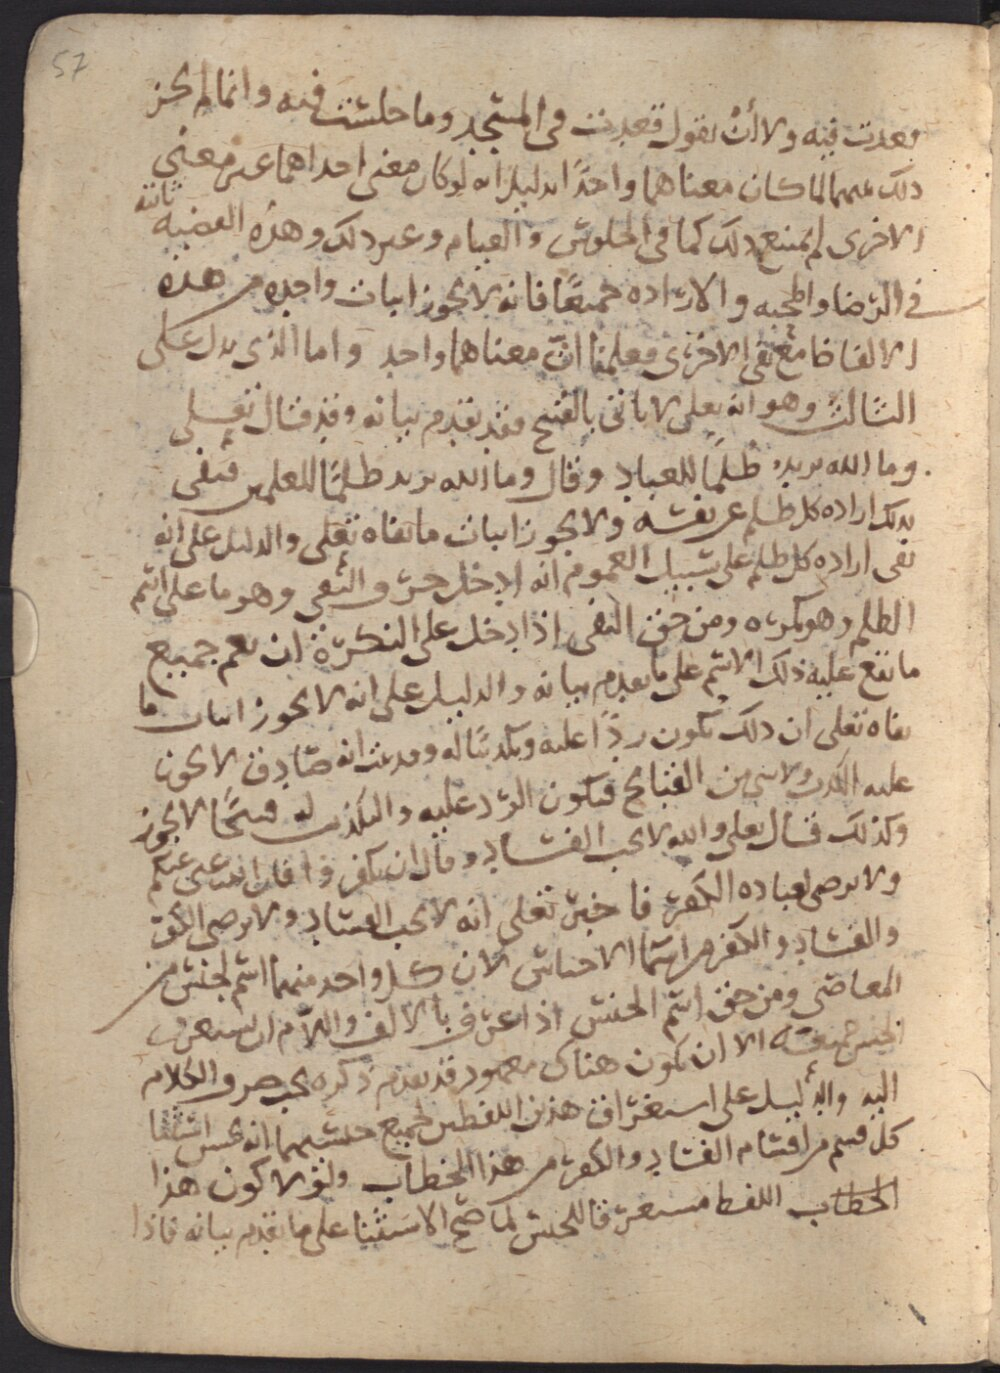 57
قعدت فيه ولا أن يقول قعدت في المسجد وما جلست فيه وانما لم يجز
ذلك فيهما لما كان معناهما واحدًا بدليل انه لو كان معنى احداهما غير معنى
الاخرى لم يمتنع ذلك كما في الجلوس والقيام وغير ذلك وهذه القضية ثابتة
في الرضا والمحبه والاراده جميعًا فانه لا يجوز اثبات واحده من هذه
الالفاظ مع نفي الاخرى فعلمنا انّ معناهما واحد واما الذي يدل على
الثالث وهو انه تعلى لا يأتي بالقبيح فقد تقدم بيانه وقد قال تعلى
وما الله يريد ظلمًا للعباد وقال وما الله يريد ظلمًا للعلمين فنفى
بذلك اراده كل ظلم عن نفسه ولا يجوز اثبات ما نفاه تعلى والدليل على انه
نفى اراده كل ظلم على سبيل العموم انه ادخل حرف النفي وهو ما على اسم
الظلم وهو نكره ومن حق النفي اذا دخل على النكرة ان يعم جميع
ما يقع عليه ذلك الاسم على ما تقدم بيانه والدليل على انه لا يجوز اثبات ما
نفاه تعلى ان ذلك يكون ردًا عليه وتكذيبًا له وقد ثبت انه صادق لا يجوز
عليه الكذب ولا شي من القبائح فيكون الرد عليه والتكذيب له قبيحًا لا يجوز
وكذلك قال تعلى والله لا يحب الفساد وقال ان تكفروا فان الله غني عنكم
ولا يرضى لعباده الكفر فاخبر تعلى انه لا يحب الفساد ولا يرضى الكفر
والفساد والكفر من اسما الاجناس لان كل واحد منهما اسم لجنس من
المعاصي ومن حق اسم الجنس اذا عرف بالالف واللام ان يستغرق
الجنس جميعه الا ان يكون هناك معهود قد تقدم ذكره يجب صرف الكلام
اليه والدليل على استغراق هذين اللفظين لجميع جنسيهما انه يحسن استثنا
كل قسم من اقسام الفساد والكفر من هذا الخطاب ولولا كون هذا
الخطاب اللفظ مستغرقا للجنس لما صح الاستثنا على ما تقدم بيانه فاذا